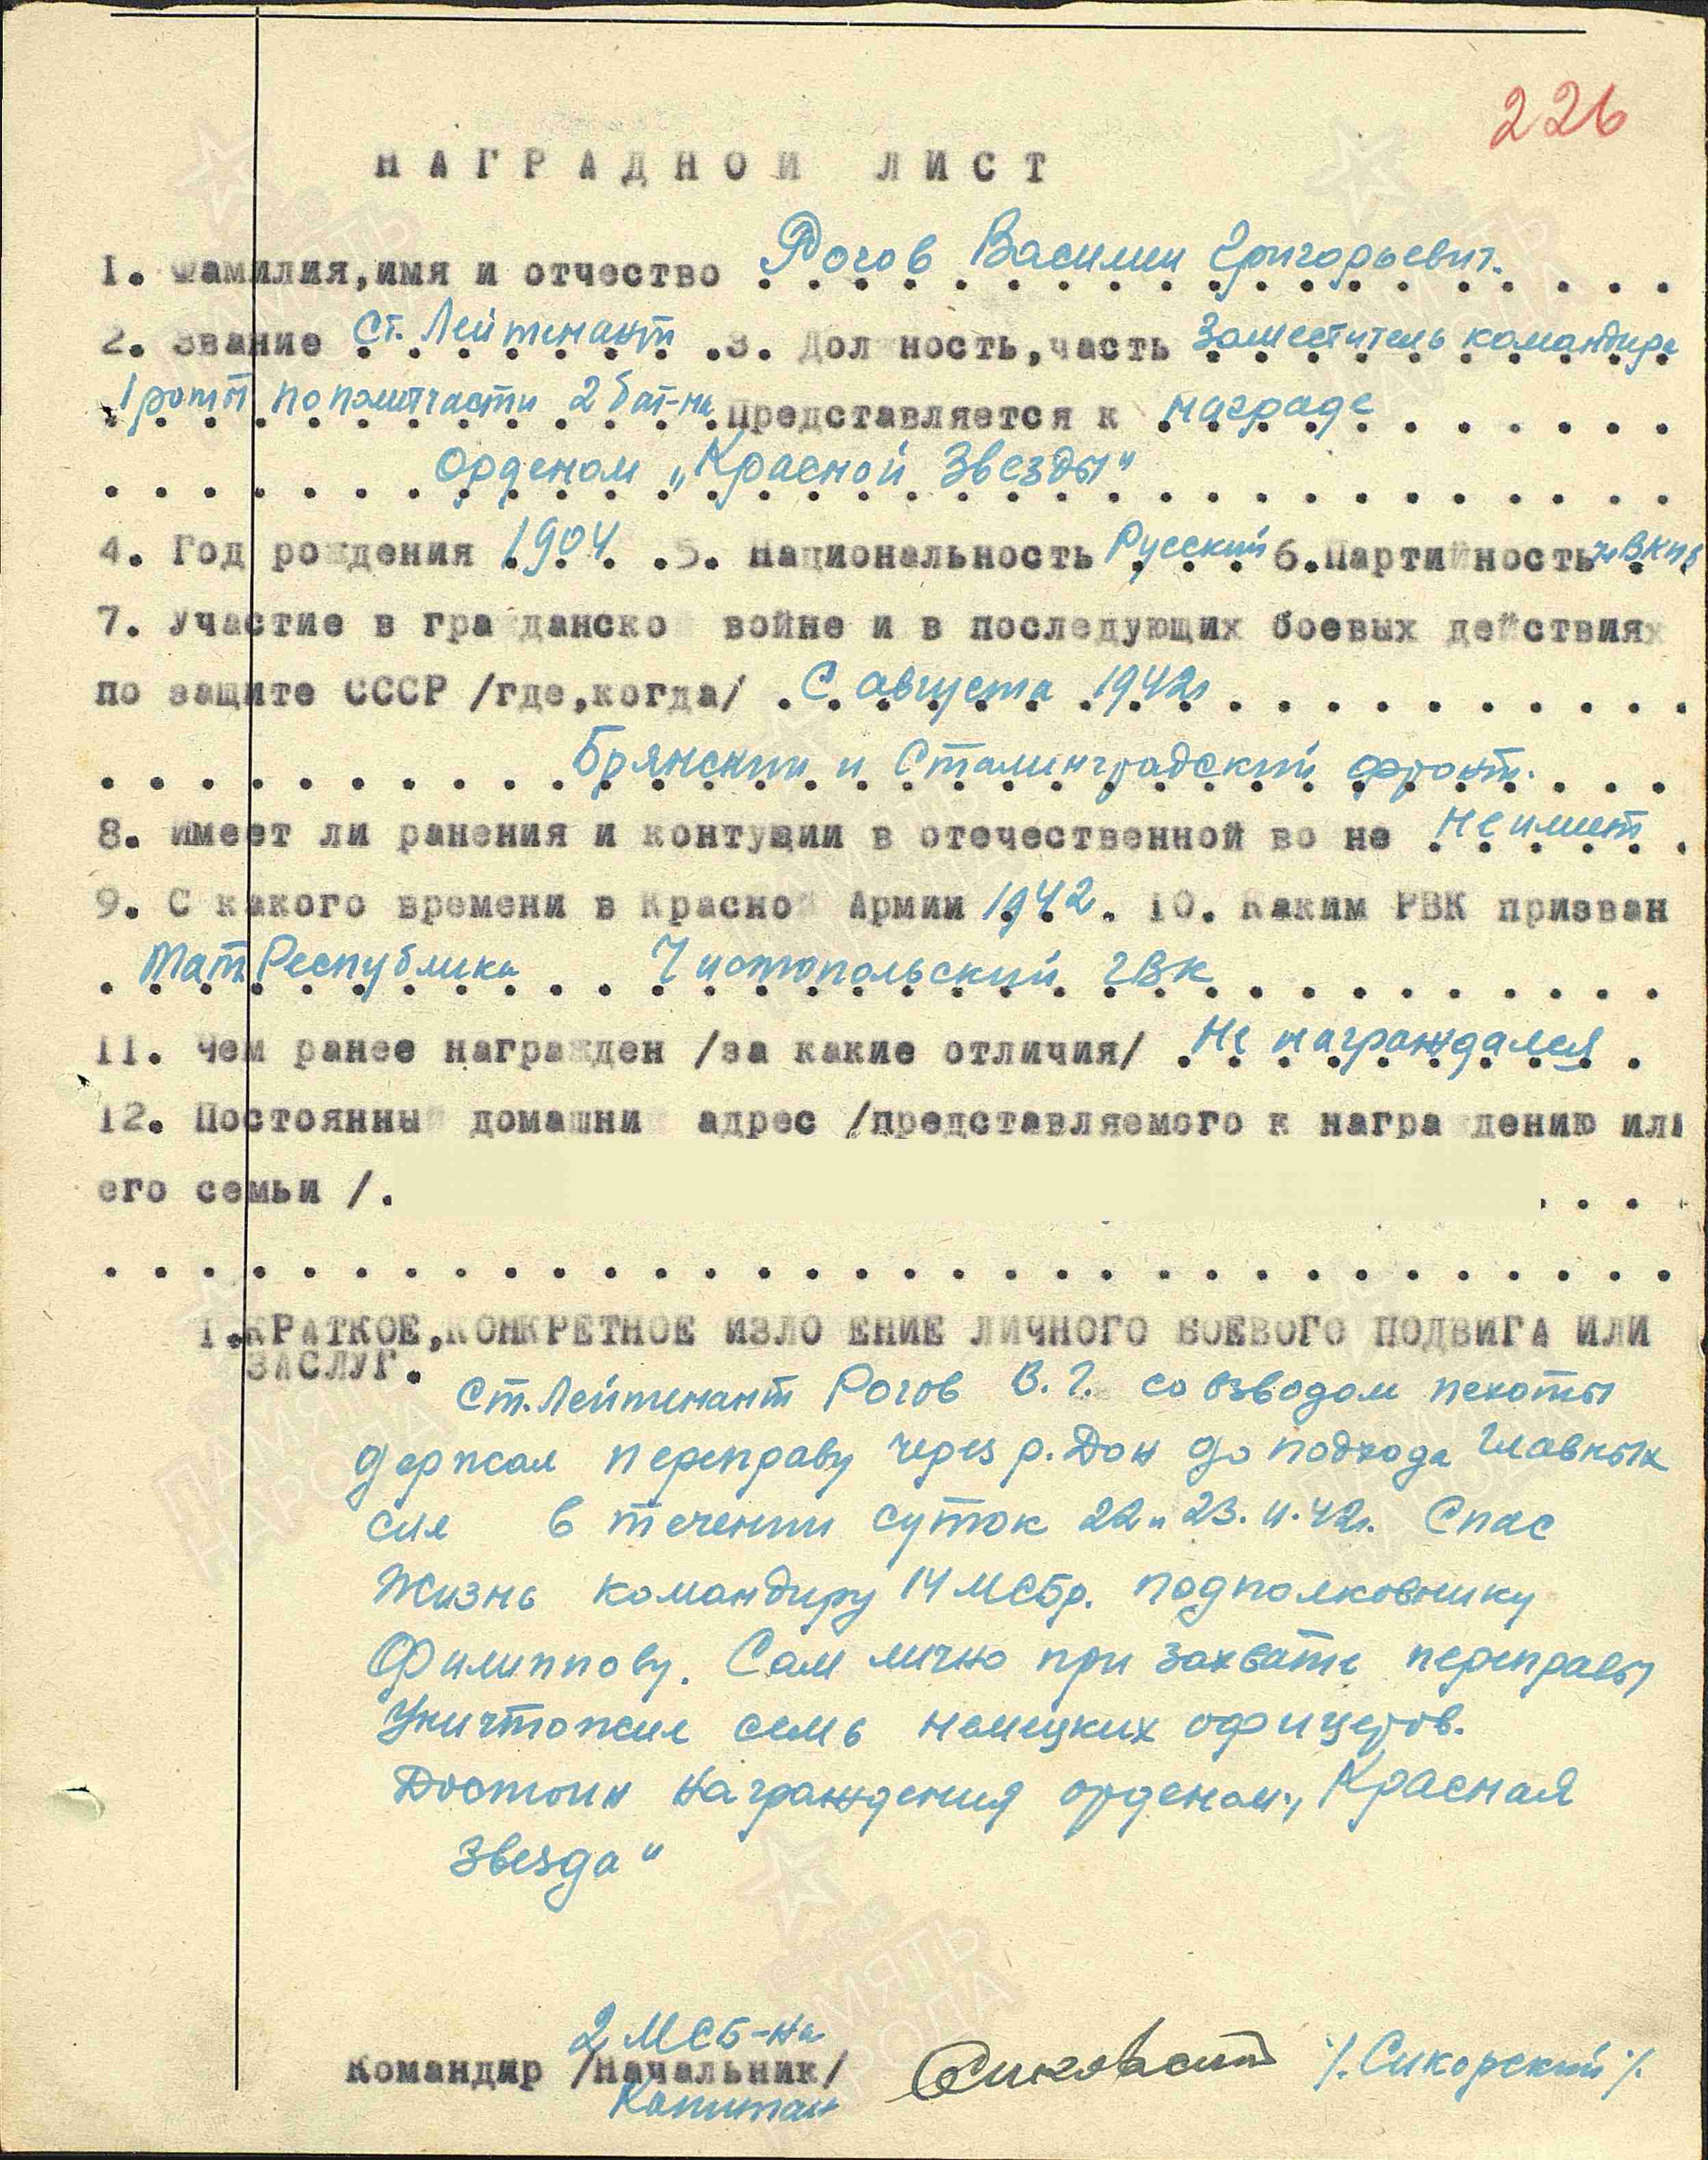 226
НАГРАДНОЙ ЛИСТ
1. Фамилия,имя и отчество Рогов Василий Григорьевич.
2. Звание Ст. Лейтенант 3. Должность,часть Заместитель командира
1 роты по политчасти 2 бат-на Представляется к награде
Орденом „Красной Звезды"
4. Год рождения 1904 5. Национальность Русский 6.Партийность чл ВКПб
7. Участие в гражданской войне и в последующих боевых действиях
по защите СССР /где,когда/ С августа 1942г
Брянский и Сталинградский фронт.
8. Имеет ли ранения и контузии в отечественной войне Не имеет
9. С какого времени в Красной Армии 1942. 10. Каким РВК призван
Тат Республика Чистопольский ГВК
11. Чем ранее награжден /за какие отличия/ Не награждался
12. Постоянный домашний адрес /представляемого к награждению или
его семьи /.
1.КРАТКОЕ,КОНКРЕТНОЕ ИЗЛОЖЕНИЕ ЛИЧНОГО БОЕВОГО ПОДВИГА ИЛИ
ЗАСЛУГ.
Ст. Лейтенант Рогов В. Г. со взводом пехоты
держал переправу через р. Дон до подхода главных
сил в течении суток 22 и 23. 11. 42г. Спас
жизнь командиру 14 МСбр. подполковнику
Филиппову. Сам лично при захвате переправы
уничтожил семь немецких офицеров.
Достоин награждения орденом „Красная
Звезда"
2 МСБ-на
Командир /Начальник/ /. Сикорский /.
Капитан